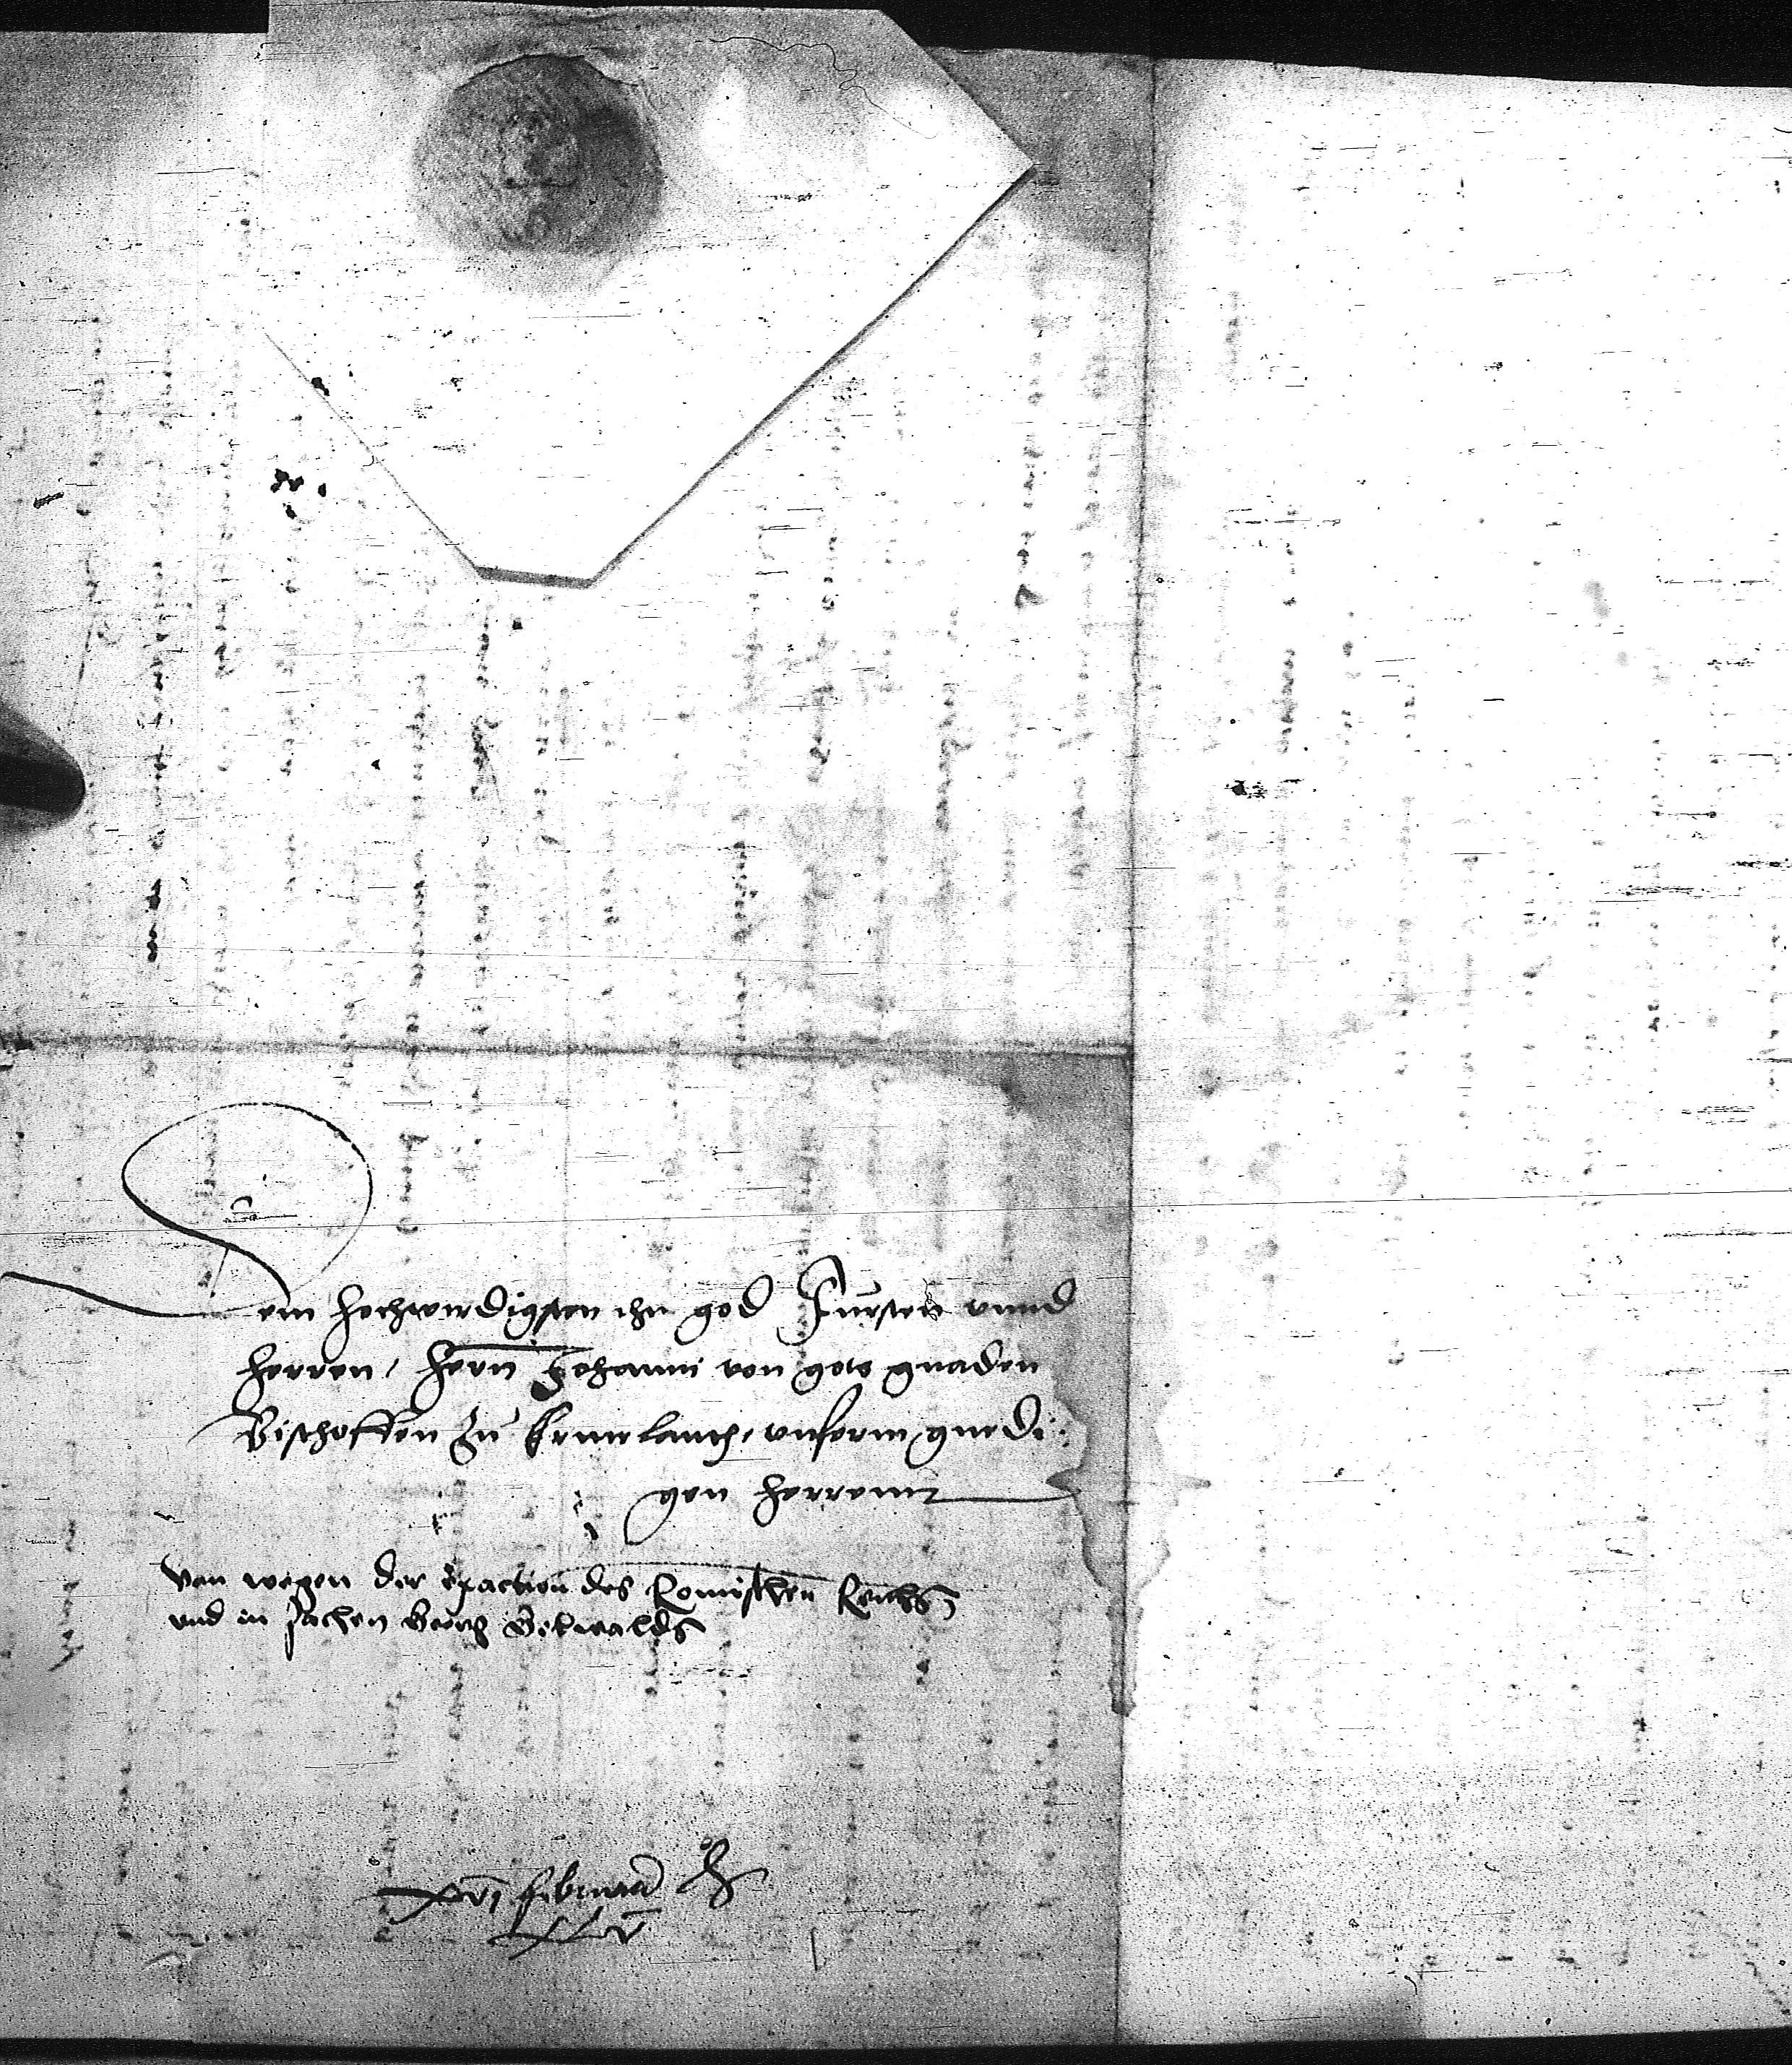 Dem hochwirdigsten ihn god Fursten vnnd
herren, hern Johanni von gots gnaden
Bischoffen zu Ermelandt, vnserm gnedi:
gen herrenn
Von wegen der exaction des Romischen Reichs
vnd in sachen Georg Bekwalds
xvi februarii
xLv